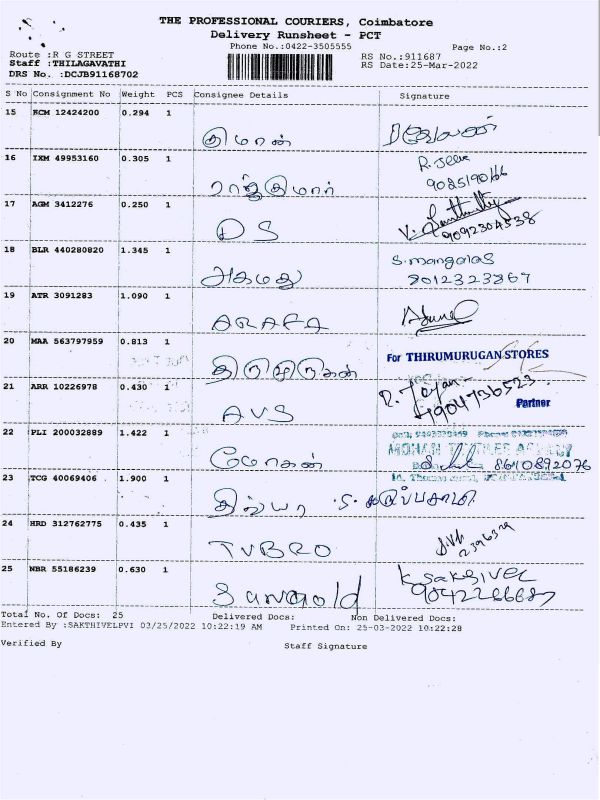 THE PROFESSIONAL COURIERS, Coimbatore
Delivery Runsheet - PCT
Phone No.:0422-3505555 Page No.:2
Route :R G STREET RS No.:911687
Staff :THILAGAVATHI RS Date:25-Mar-2022
DRS No. :DCJB91168702
S No Consignment No Weight PCS Consignee Details Signature
15 KCM 12424200 0.294 1
16 IXM 49953160 0.305 1 ராஜ்குமார்
17 AGM 3412276 0.250 1 DS 9092304538
18 BLR 440280820 1.345 1 அகமது S.mangalas 8012323867
19 ATR 3091283 1.090 1 ARAFA
20 MAA 563797959 0.813 1 திருமுருகன் For THIRUMURUGAN STORES
21 ARR 10226978 0.430 1 AVS 7904736523 Partner
22 PLI 200032889 1.422 1 மோகன் 8610892076
23 TCG 40069406 1.900 1 திவ்யா
24 HRD 312762775 0.435 1 TVBRO
25 NBR 55186239 0.630 1 K.SAKTIVEL
Total No. Of Docs: 25 Delivered Docs: Non Delivered Docs:
Entered By :SAKTHIVELPVI 03/25/2022 10:22:19 AM Printed On: 25-03-2022 10:22:28
Verified By Staff Signature